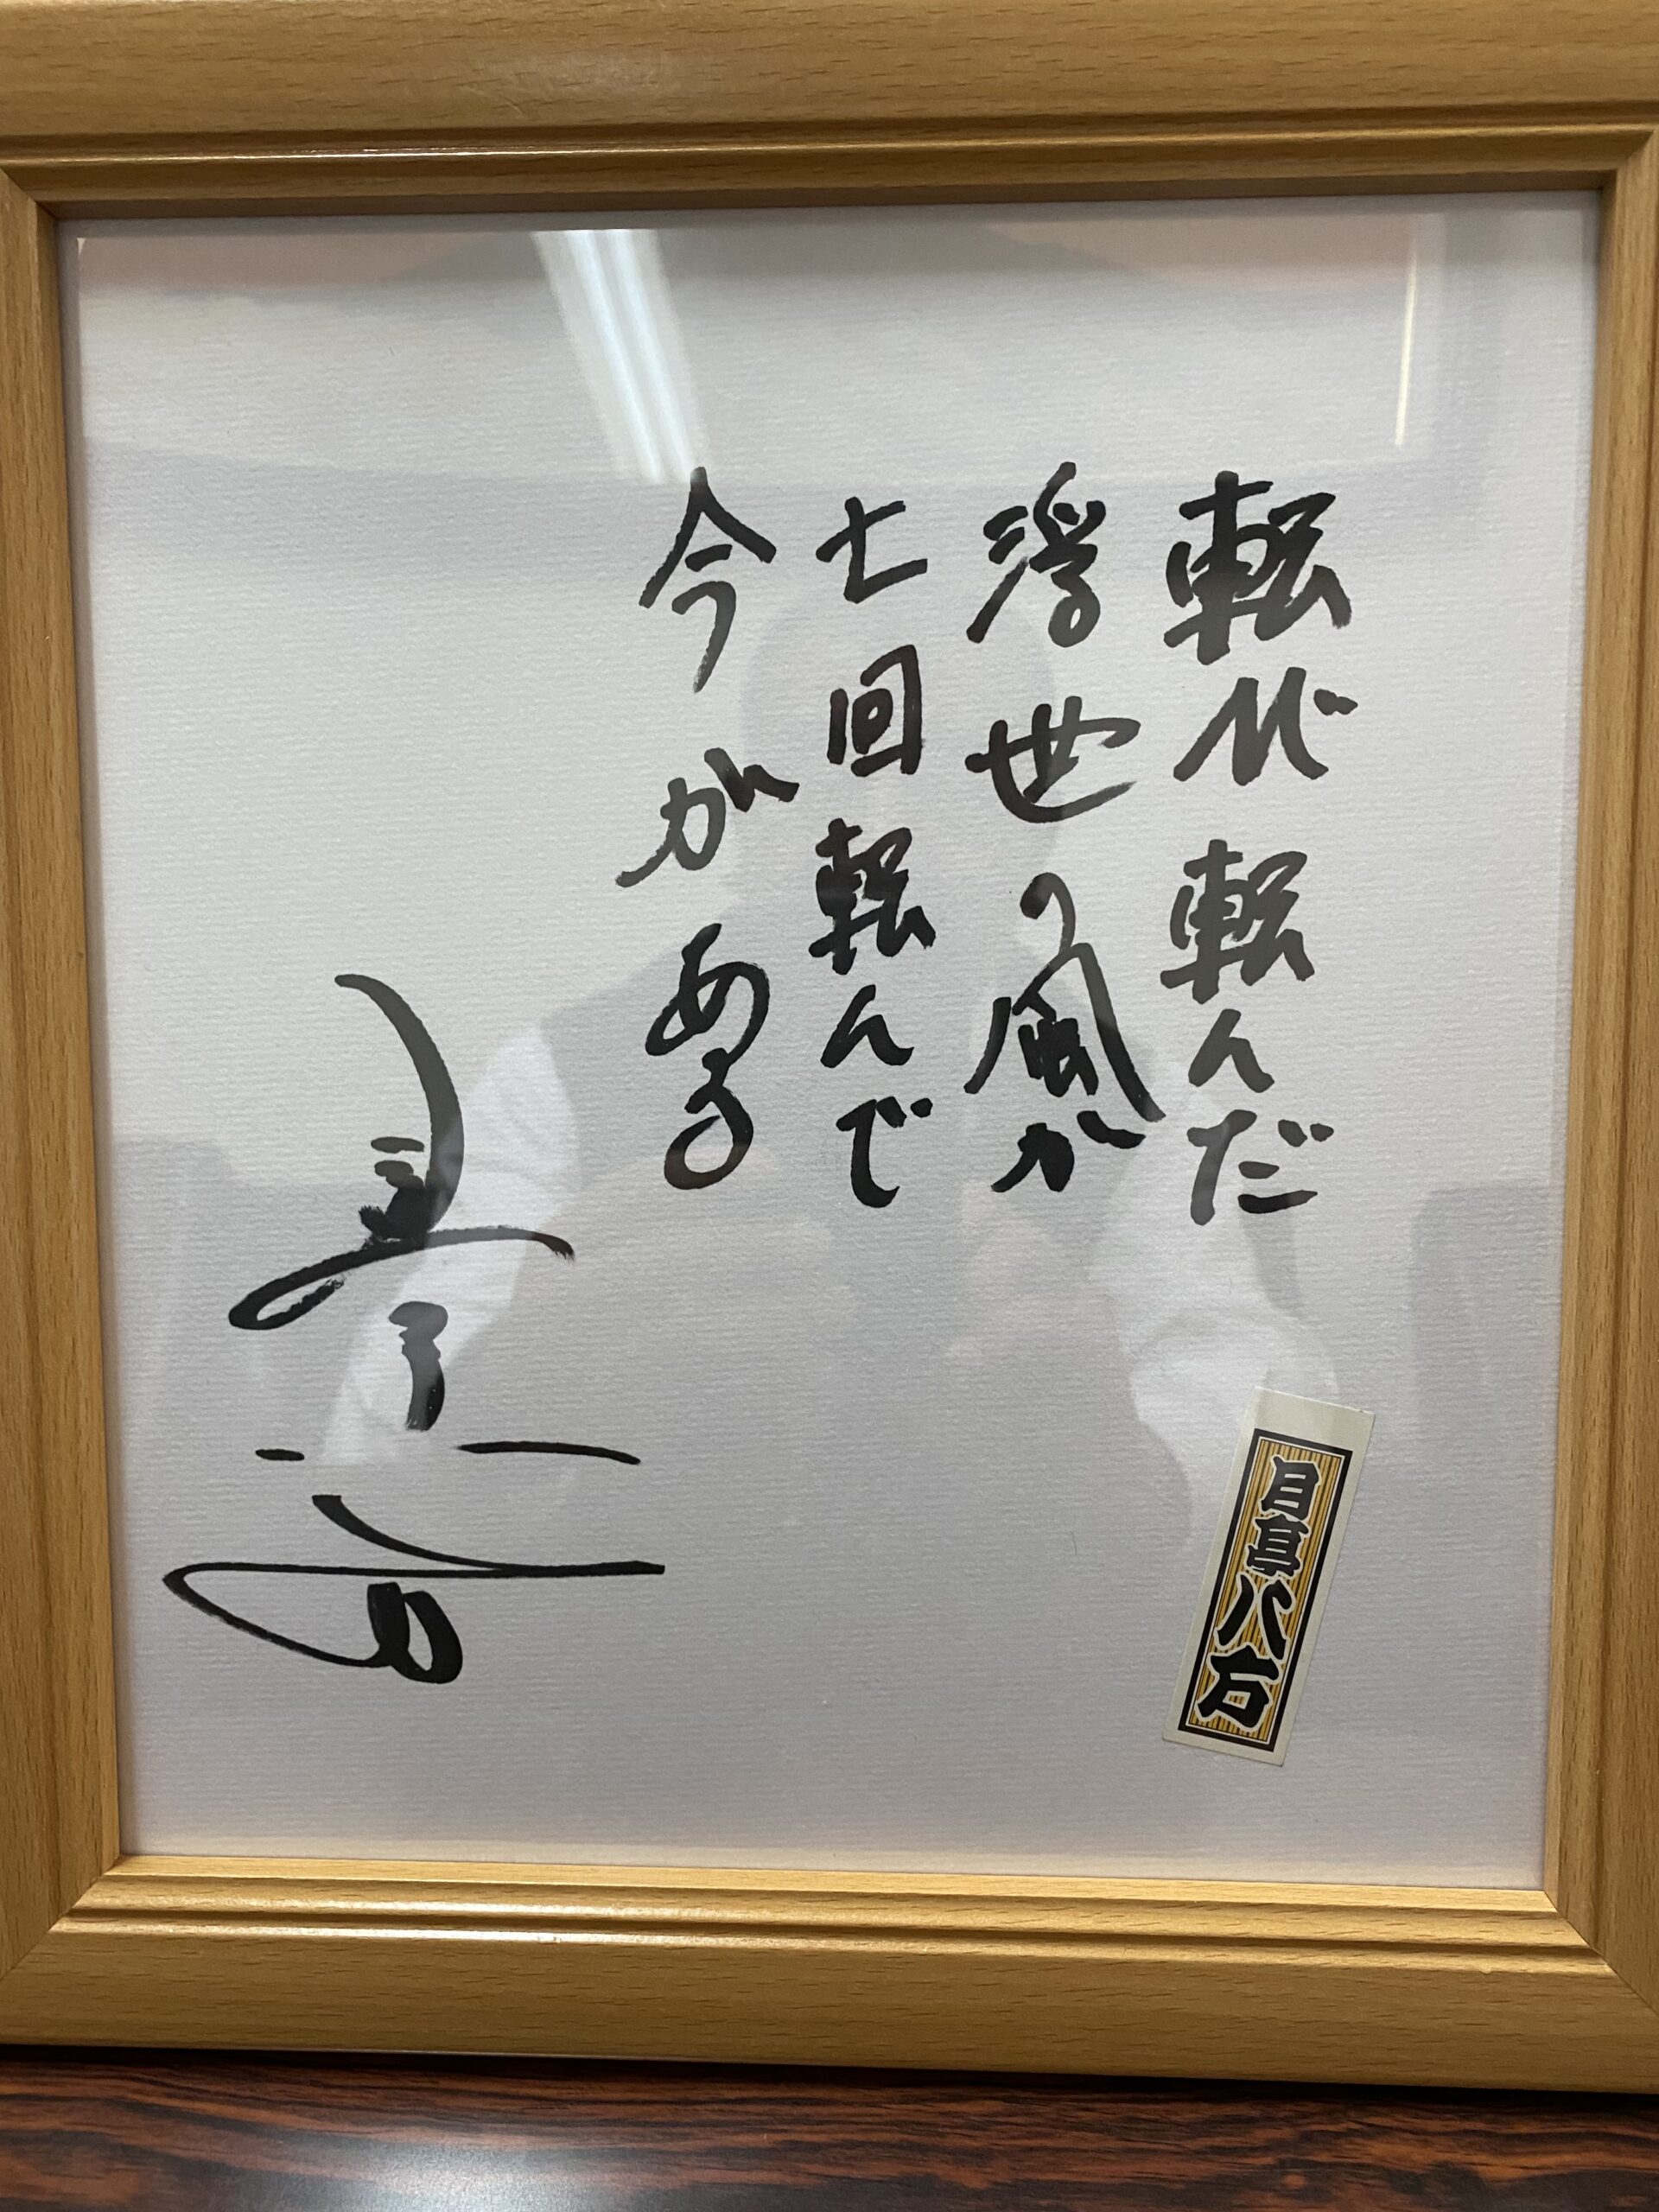 転べ転んだ
浮世の風が
七回転んで
今がある
月亭八方
月亭八方